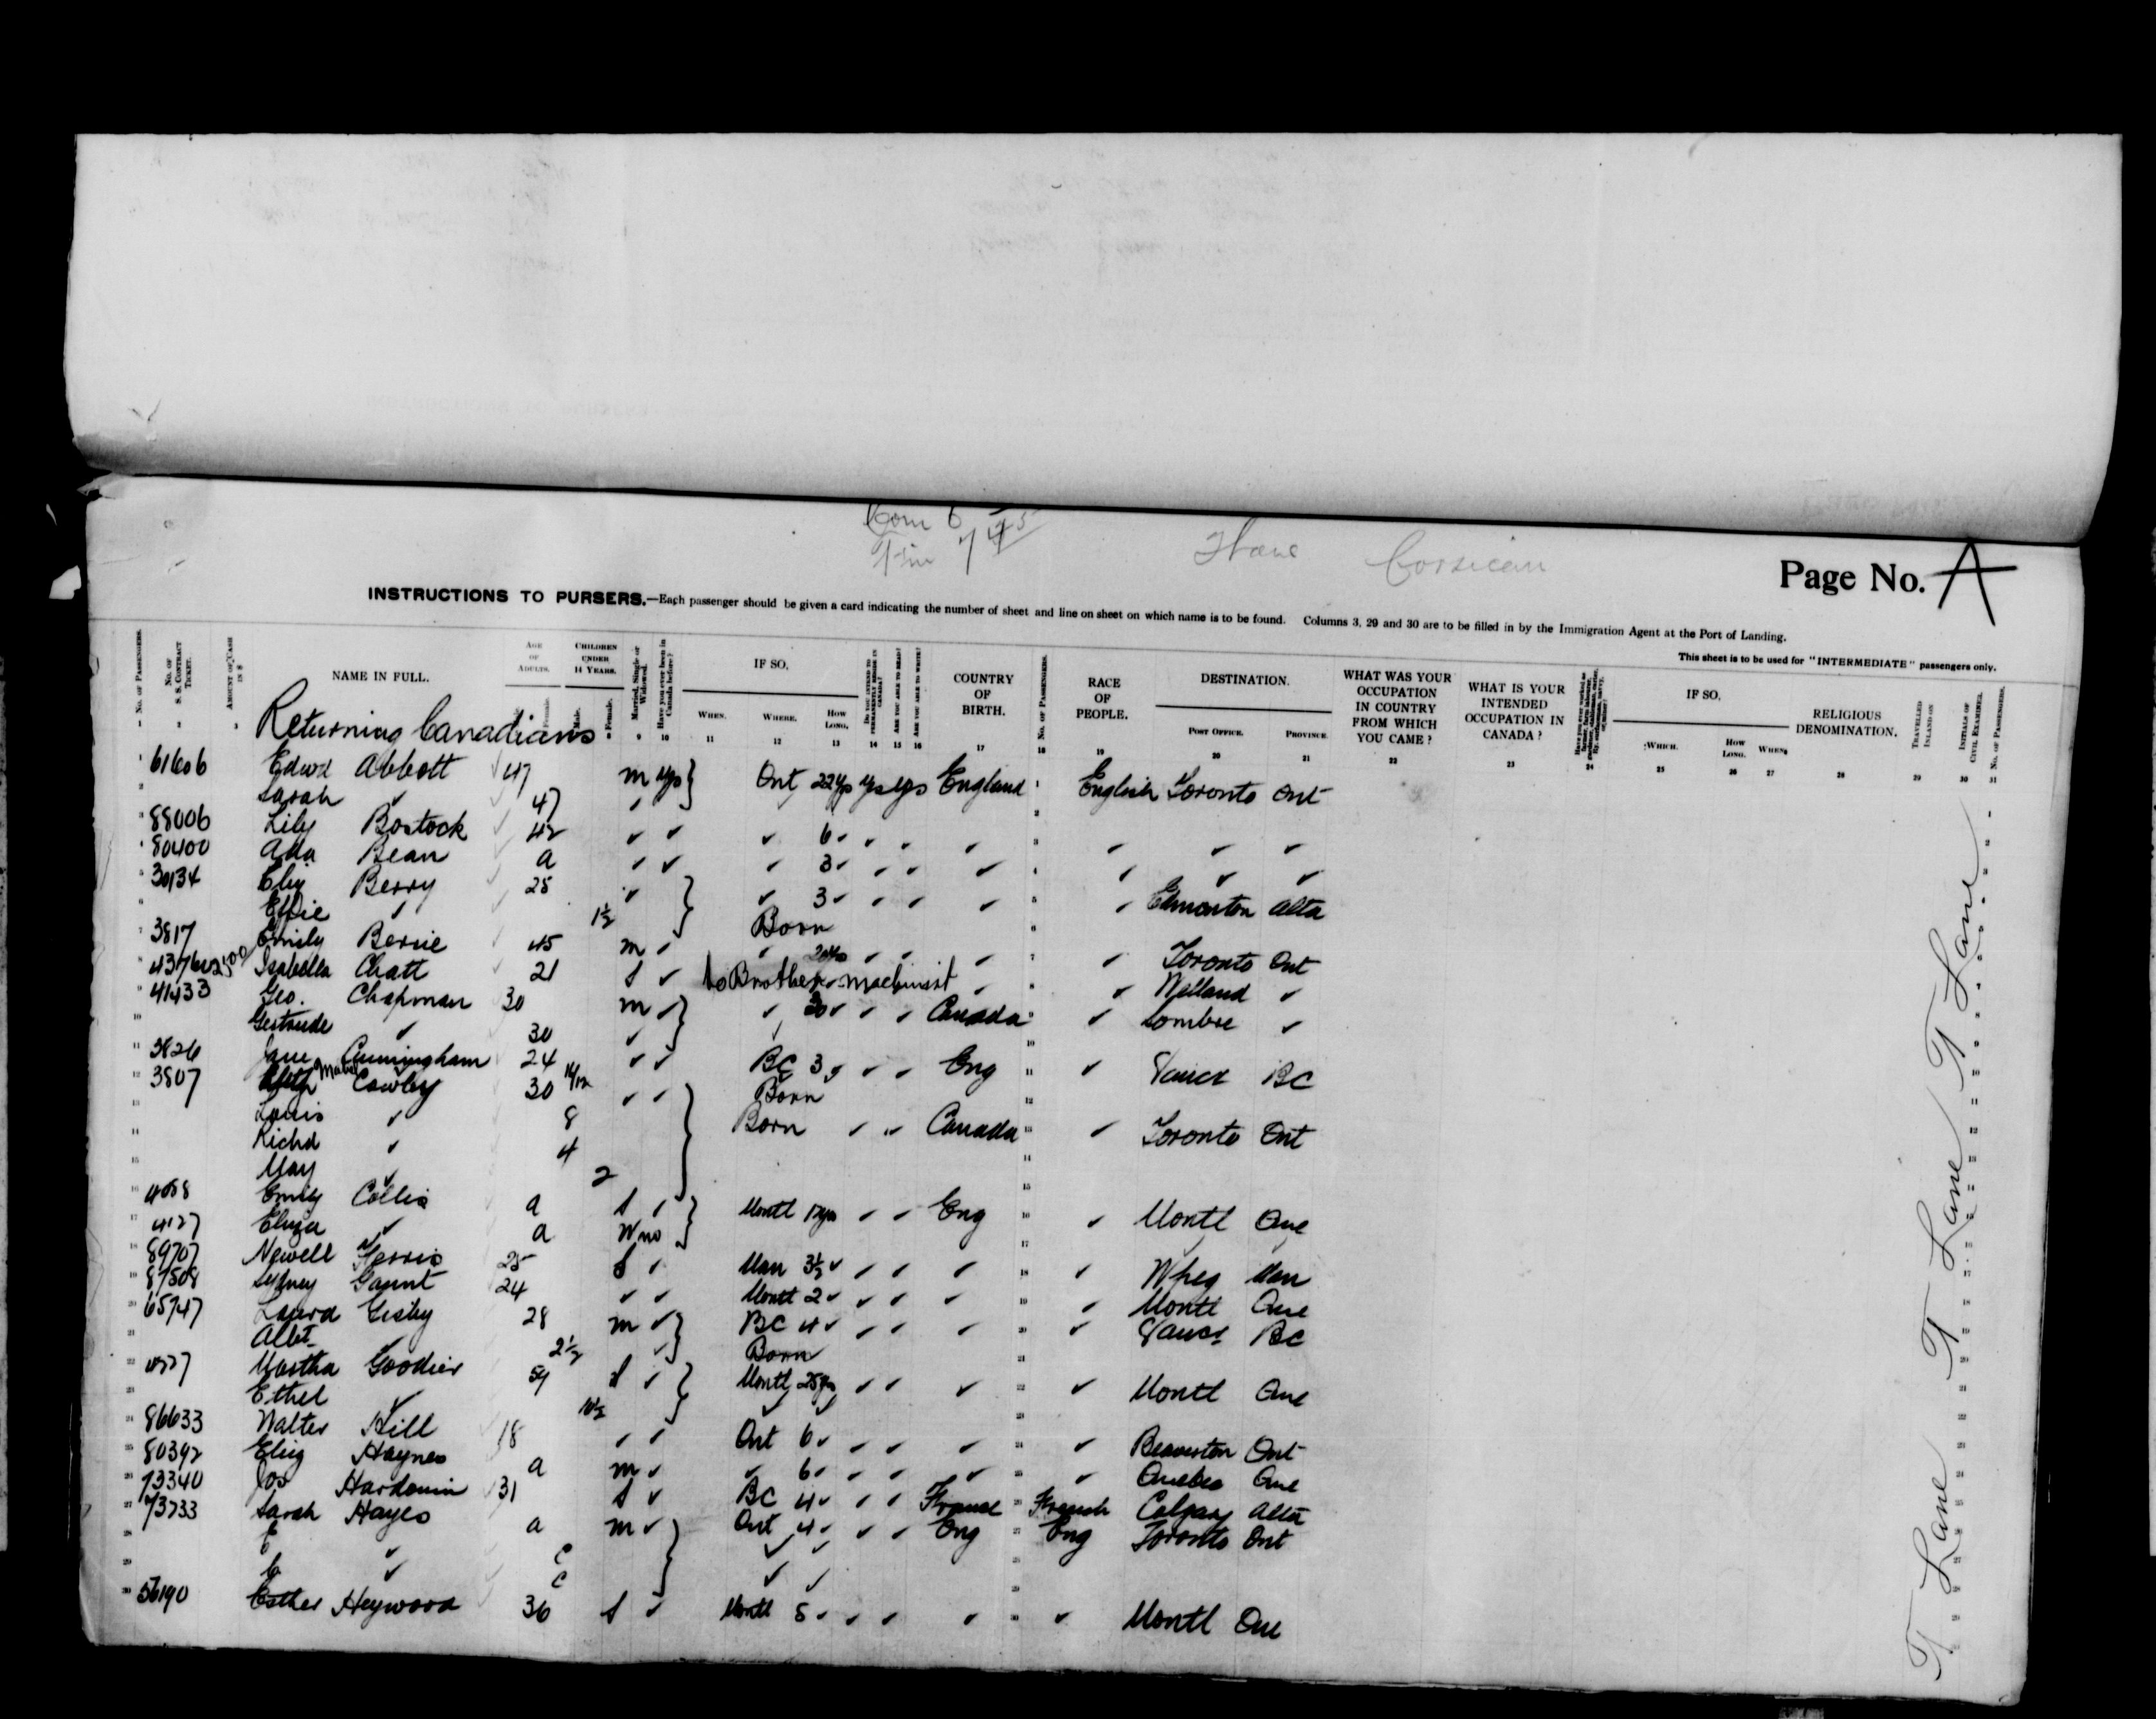 Com 6
745
Corsican
Page No. A
INSTRUCTIONS TO PURSERS.—Each passenger should be given a card indicating the number of sheet and line on sheet on which name is to be found. Columns 3, 29 and 30 are to be filled in by the Immigration Agent at the Port of Landing.
This sheet is to be used for "INTERMEDIATE" passengers only.
No. of Passengers. No. of S. S. Contract Ticket. Amount of Cash in $ NAME IN FULL. Age of Adults. Children under 14 Years. Married, Single or Widowed. Have you ever been in Canada before? IF SO, Do you intend to permanently reside in Canada? Are you able to read? Are you able to write? COUNTRY OF BIRTH. No. of Passengers. RACE OF PEOPLE. DESTINATION. WHAT WAS YOUR OCCUPATION IN COUNTRY FROM WHICH YOU CAME? WHAT IS YOUR INTENDED OCCUPATION IN CANADA? IF SO, RELIGIOUS DENOMINATION. Travelled Inland on Initials of Civil Examiner. No. of Passenger.
Female. Male. Female. When. Where. How Long. Post Office. Province. Which. How Long. When.
1 2 9 10 11 12 13 14 15 16 17 18 19 20 21 22 23 24 25 26 27 28 29 30 31
Returning Canadians
1 61606 Edwd Abbott 47 m yes Ont 22 yrs yes yes England 1 English Toronto Ont
2 Sarah ✓ 47 ✓ 2
3 88006 Lily Bostock ✓ 42 ✓ ✓ ✓ 6 ✓ ✓ ✓ ✓ 3 ✓ ✓ ✓
4 80400 Ada Bean ✓ a ✓ ✓ ✓ 3 ✓ ✓ ✓ ✓ 4 ✓ ✓ ✓
5 30134 Eliz Berry ✓ 25 ✓ ✓ 3 ✓ ✓ ✓ ✓ 5 ✓ Edmonton Alta
6 Effie ✓ 1½ Born 6
7 3817 Emily Berrie ✓ 45 m ✓ ✓ ✓ ✓ ✓ 7 ✓ Toronto Ont
8 2500 Isabella Chatt 21 S ✓ to Brother machinist ✓ 8 ✓ Welland ✓
9 41433 Geo. Chapman 30 m ✓ ✓ 30 ✓ ✓ ✓ Canada 9 ✓ Sombre ✓
10 Gertrude ✓ 30 ✓ 10
11 3826 Jane Cunningham 24 ✓ ✓ BC 3 ✓ ✓ ✓ Eng 11 ✓ Vancr BC
12 3807 Mabel Cowley 30 ✓ ✓ Born 12
13 Louis ✓ 8 Born ✓ ✓ Canada 13 ✓ Toronto Ont
14 Richd ✓ 4 14
15 May ✓ 2 15
16 4058 Emily Collis a S ✓ Montl ✓ ✓ Eng 16 ✓ Montl Que
17 4127 Eliza ✓ a W no 17 ✓ ✓
18 89707 Newell Ferris 25 S ✓ Man 3½ ✓ ✓ ✓ ✓ 18 ✓ Wpeg Man
19 87508 Sydney Gaunt 24 ✓ ✓ Montl 2 ✓ ✓ ✓ ✓ 19 ✓ Montl Que
20 65747 Laura Gisby 28 m ✓ BC 4 ✓ ✓ ✓ ✓ 20 ✓ Vancr BC
21 Albt ✓ 2½ ✓ Born 21
22 Martha Goodier S ✓ Montl 25 yrs ✓ ✓ ✓ 22 ✓ Montl Que
23 Ethel ✓ 10½ ✓ ✓ 23
24 86633 Walter Hill 18 ✓ ✓ Ont 6 ✓ ✓ ✓ ✓ 24 ✓ Beaverton Ont
25 80392 Eliz Haynes a m ✓ ✓ 6 ✓ ✓ ✓ ✓ 25 ✓ Quebec Que
26 73340 Jos Hardouin 31 S ✓ BC 4 ✓ ✓ ✓ France 26 French Calgary Alta
27 73733 Sarah Hayes a m ✓ Ont 4 ✓ ✓ ✓ Eng 27 Eng Toronto Ont
28 E ✓ c ✓ ✓ 28
29 C ✓ c ✓ ✓ 29
30 56190 Esther Heywood 36 S ✓ Montl 5 ✓ ✓ ✓ ✓ 30 ✓ Montl Que
T Lane T Lane T Lane T Lane